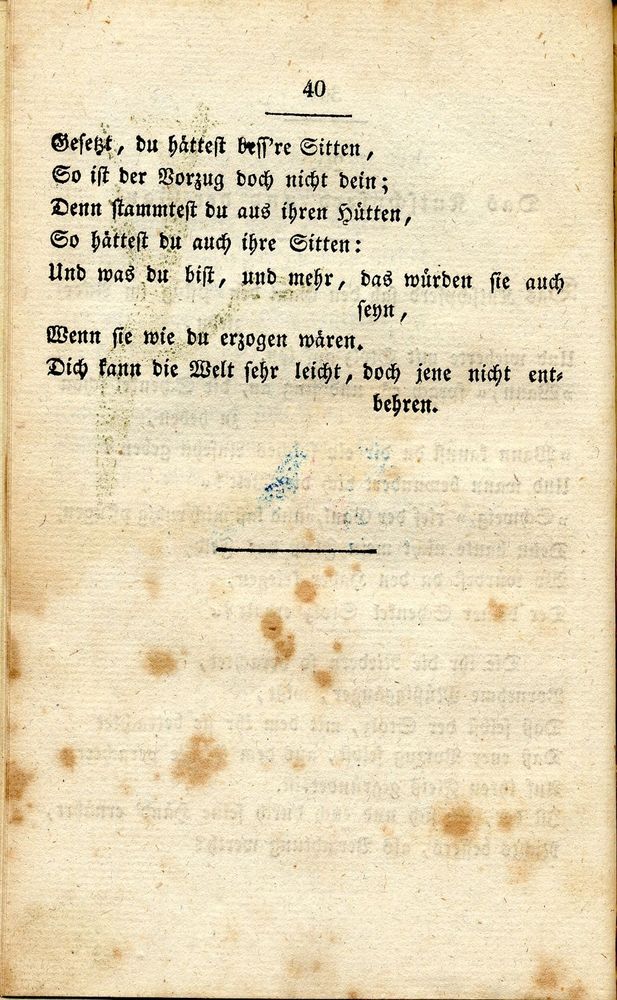 40
Gesetzt, du hättest bess're Sitten,
So ist der Vorzug doch nicht dein;
Denn stammtest du aus ihren Hütten,
So hättest du auch ihre Sitten:
Und was du bist, und mehr, das würden sie auch
seyn,
Wenn sie wie du erzogen wären.
Dich kann die Welt sehr leicht, doch jene nicht ent-
behren.